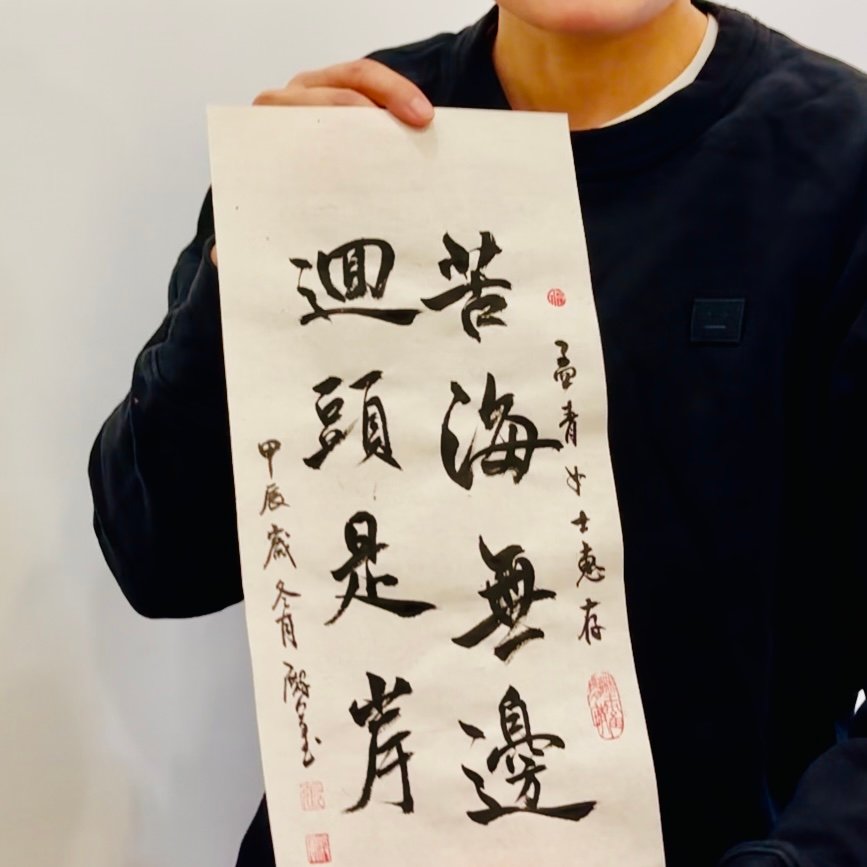 孟青女士惠存
苦海無邊
迴頭是岸
甲辰歲冬月